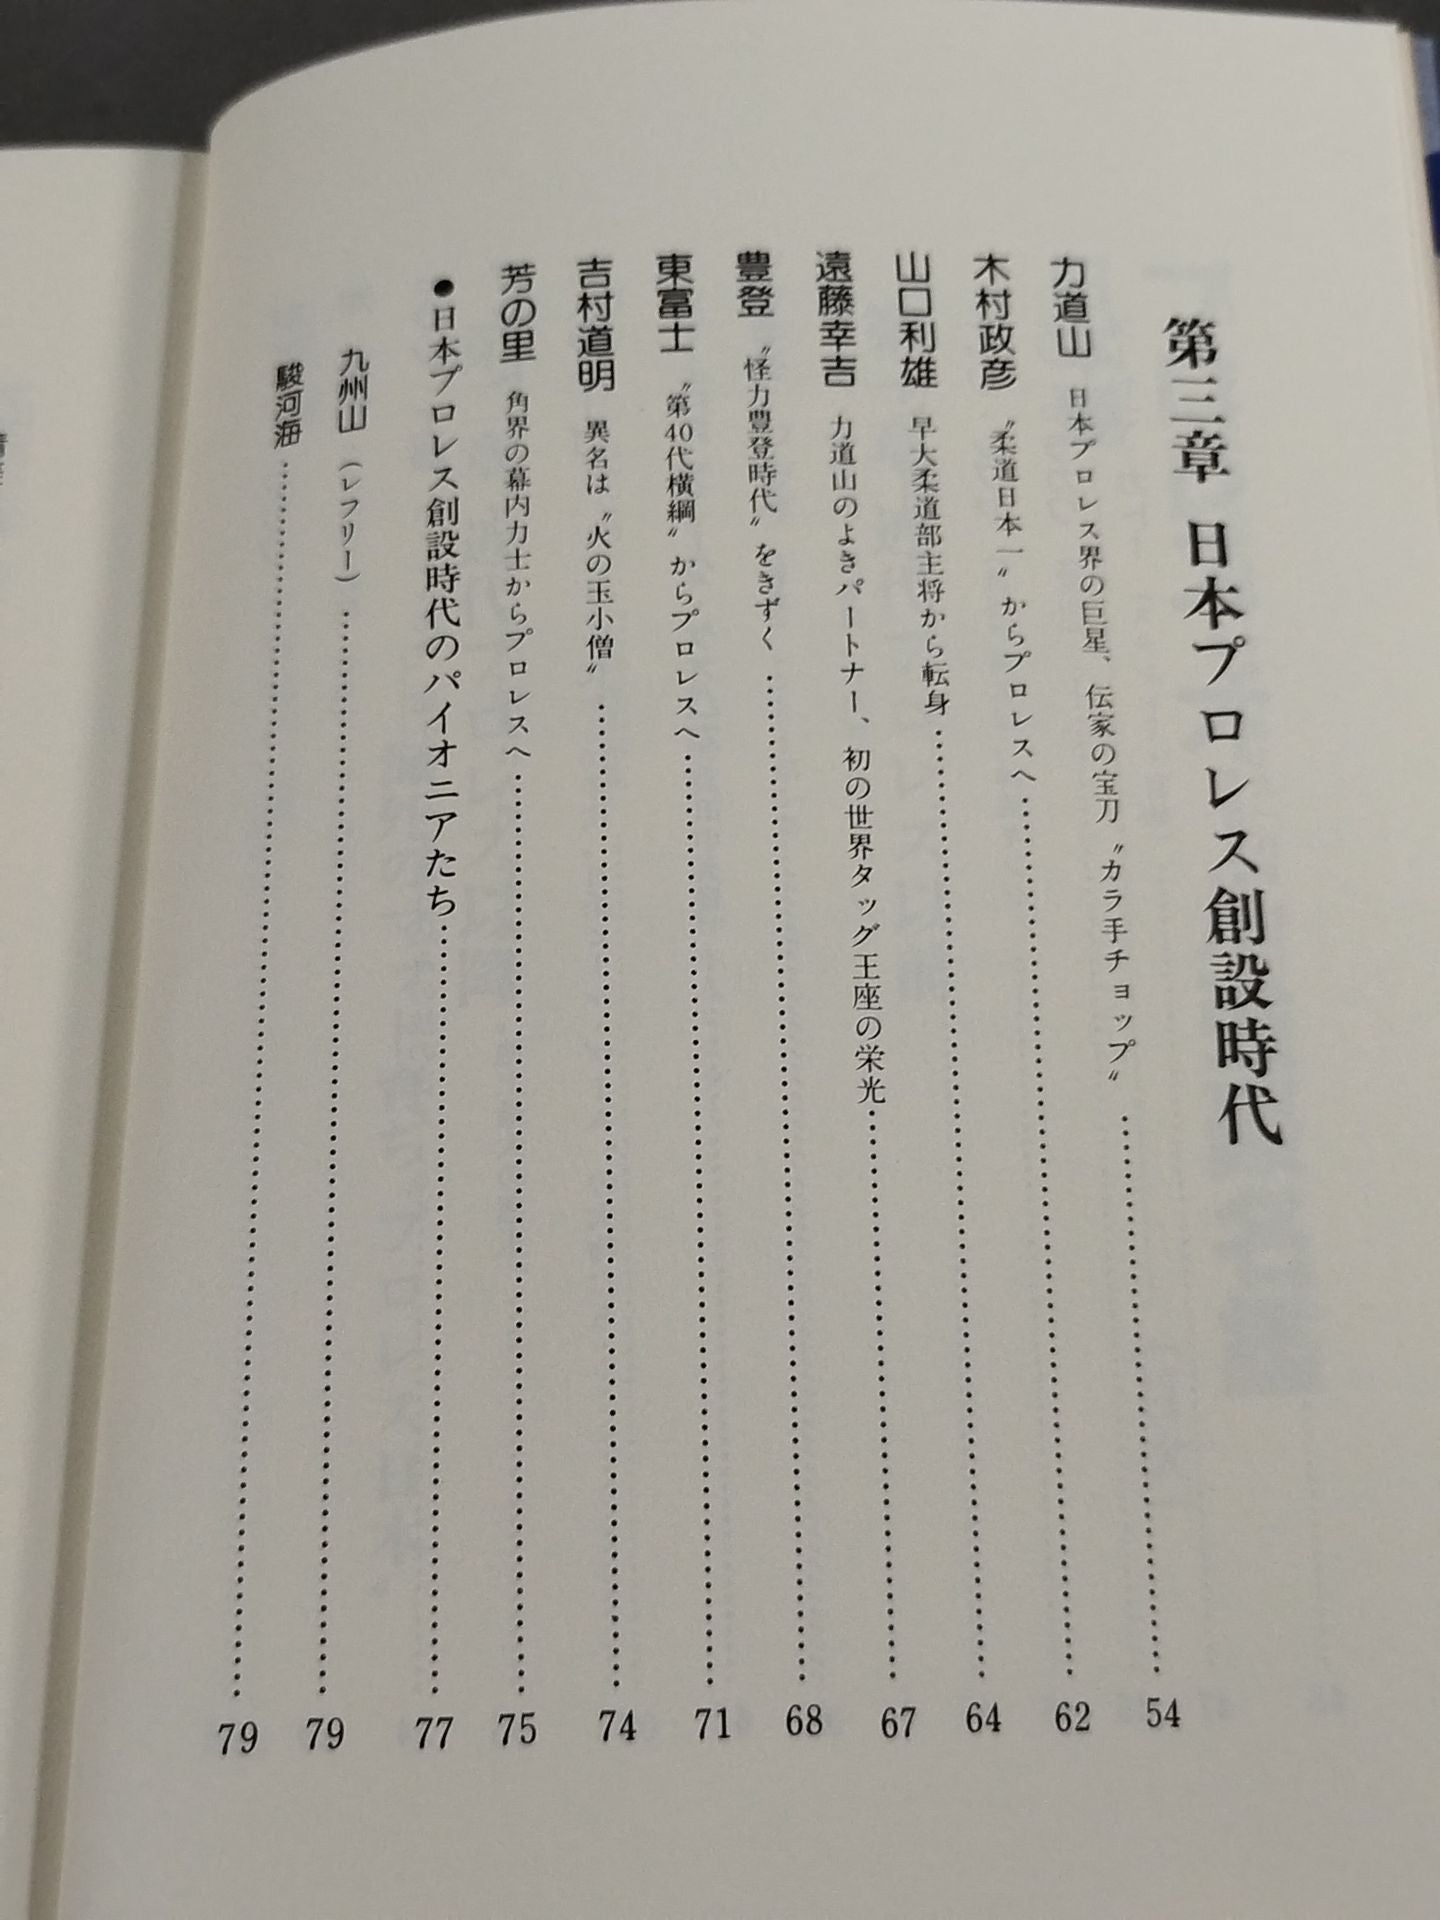 第三章 日本プロレス創設時代
力道山 日本プロレス界の巨星、伝家の宝刀〝カラ手チョップ〟 54
木村政彦 〝柔道日本一〟からプロレスへ 62
山口利雄 早大柔道部主将から転身 64
遠藤幸吉 力道山のよきパートナー、初の世界タッグ王座の栄光 67
豊登 〝怪力豊登時代〟をきずく 68
東富士 〝第40代横綱〟からプロレスへ 71
吉村道明 異名は〝火の玉小僧〟 74
芳の里 角界の幕内力士からプロレスへ 75
●日本プロレス創設時代のパイオニアたち 77
九州山(レフリー) 79
駿河海 79